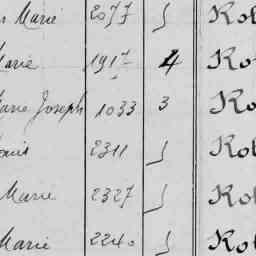 Marie 2077 5 Kol
Marie 1917 4 Kol
Marie Joseph 1033 3 Kol
Louis 2311 5 Kol
Marie 2327 5 Kol
Marie 2240 5 Kol